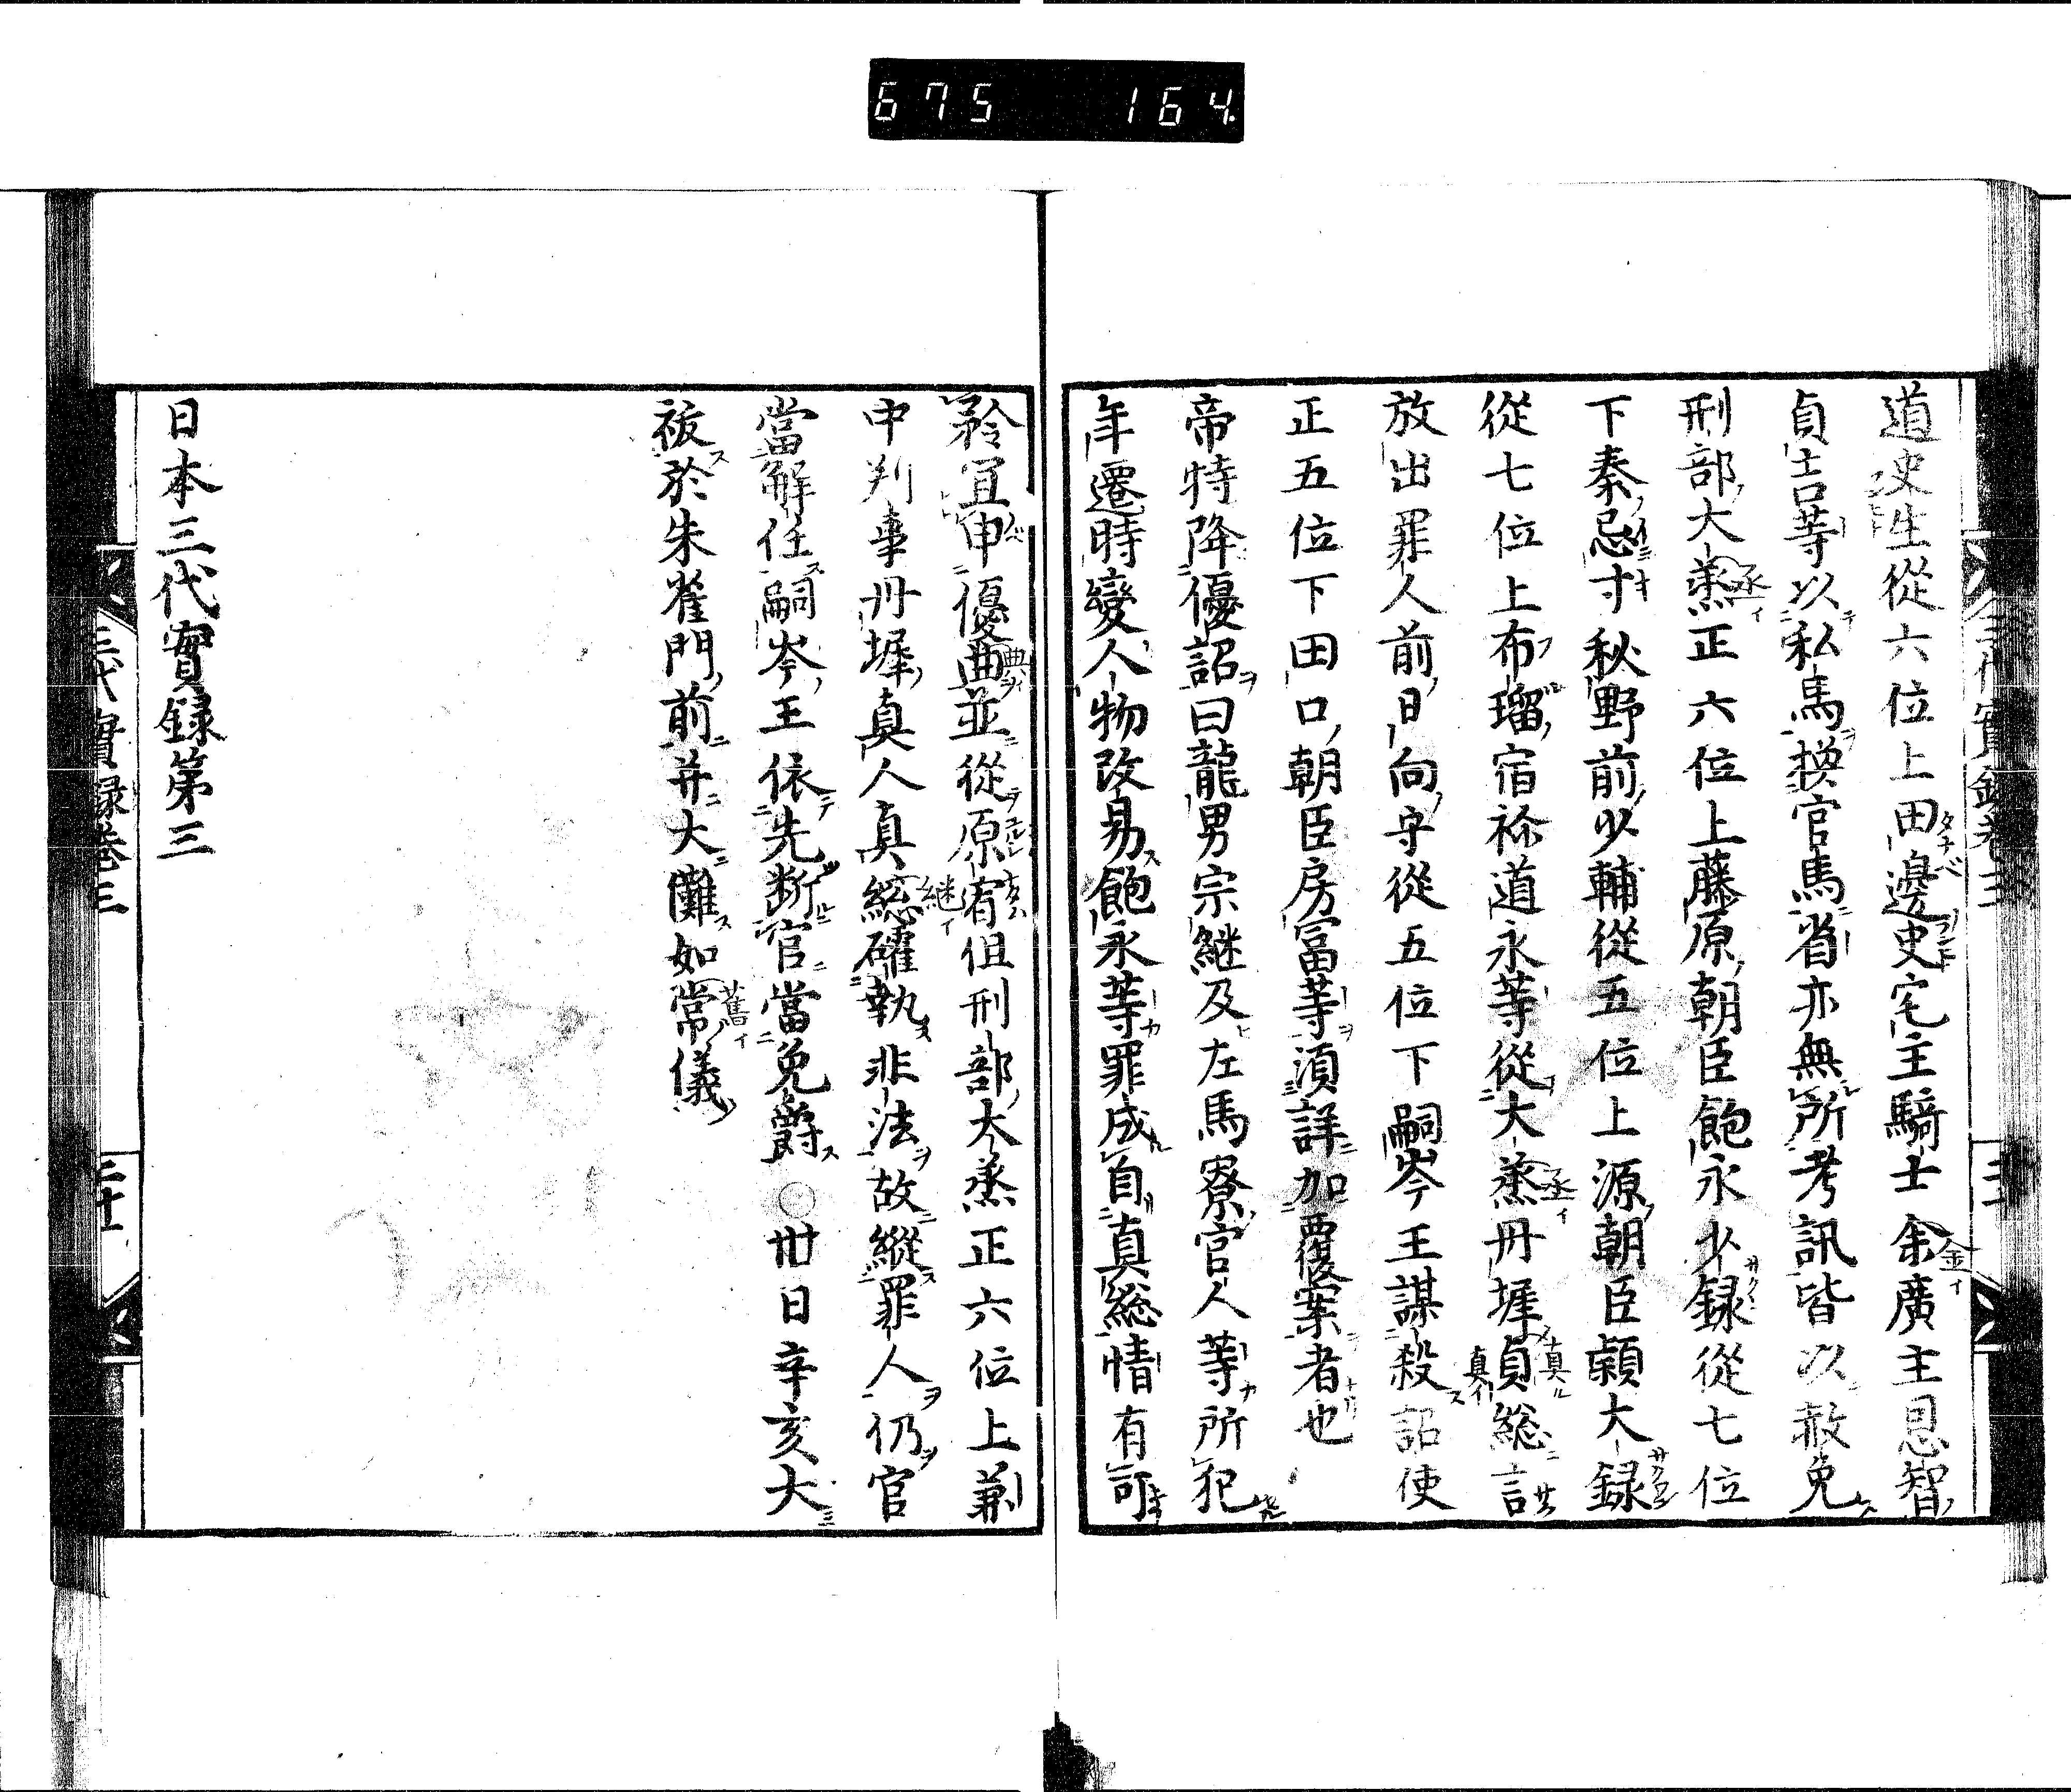 675 164
道史生從六位上田邊史宅主騎士余廣主恩智
貞吉等以私馬換官馬省亦無所考訊皆以赦免
刑部大烝正六位上藤原朝臣飽永少録從七位
下秦忌寸秋野前少輔從五位上源朝臣頴大録
從七位上布瑠宿祢道永等從大烝丹墀貞総言
放出罪人前日向守從五位下嗣岑王謀殺詔使
正五位下田口朝臣房富等湏詳加覆案者也
帝特降優詔曰龍男宗継及左馬寮官人等所犯
年遷時變人物改易飽永等罪成自真総情有可
矜宜申優曲並從原宥但刑部大烝正六位上兼
中判事丹墀真人真総確執非法故縱罪人仍官
當解任嗣岑王依先断官當免爵○丗日辛亥大
祓於朱雀門前并大儺如常儀
日本三代實録第三
三代實録卷三